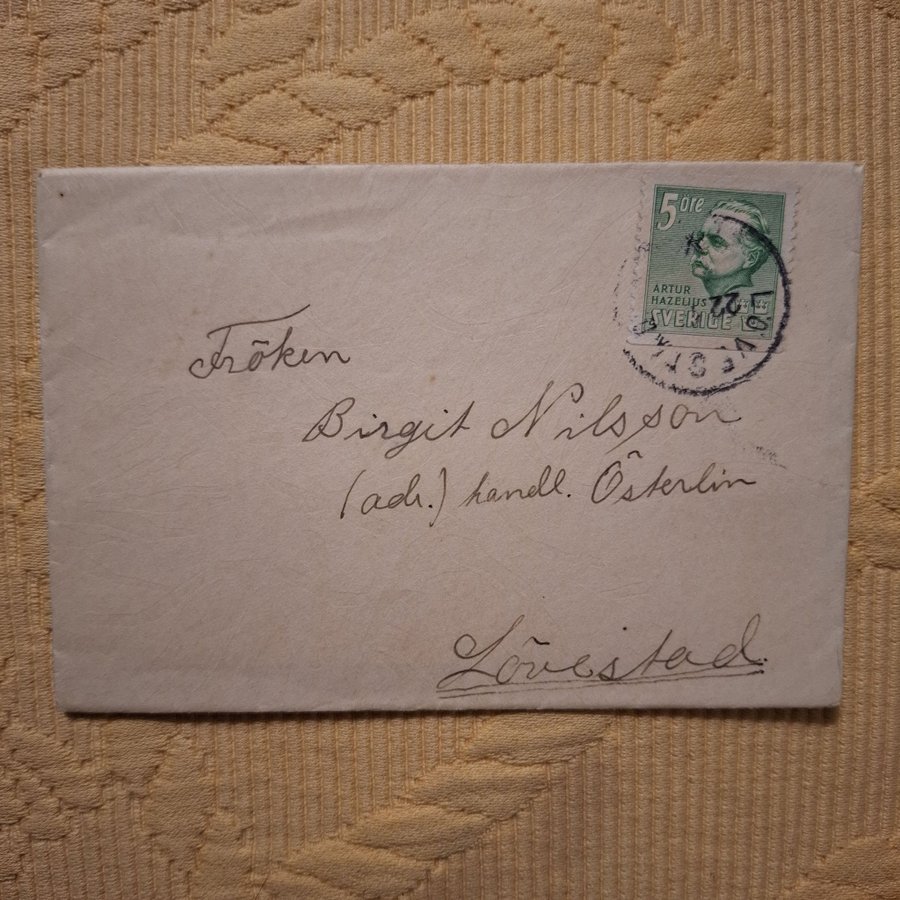 5 öre
ARTUR
HAZELIUS
SVERIGE
LÖVESTAD
22
Fröken
Birgit Nilsson
(adr.) handl. Österlin
Lövestad